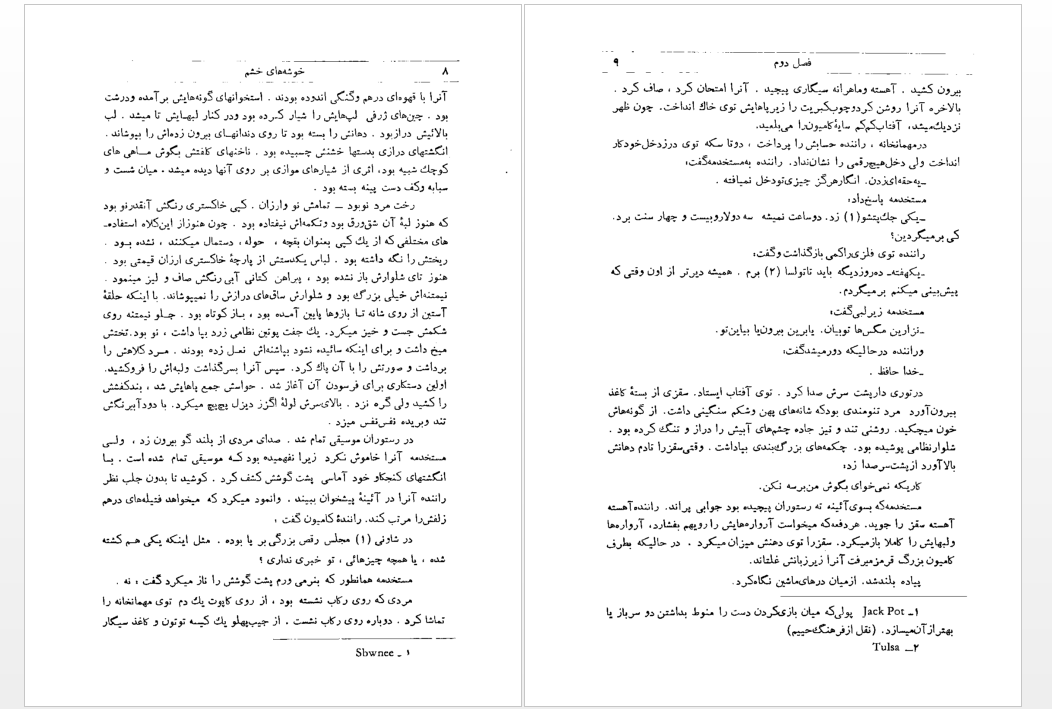 ۸ خوشه‌های خشم
آنرا با قهوه‌ای درهم وگنگی اندوده بودند . استخوانهای گونه‌هایش برآمده ودرشت
بود . چین‌های ژرفی لپ‌هایش را شیار کرده بود ودر کنار لبهایش تا میشد . لب
بالائیش درازبود . دهانش را بسته بود تا روی دندانهای بیرون زده‌اش را بپوشاند .
انگشتهای درازی بدستها خشنش چسبیده بود . ناخنهای کلفتش بگوش ماهی های
کوچك شبیه بود، اثری از شیارهای موازی بر روی آنها دیده میشد . میان شست و
سبابه وکف دست پینه بسته بود .
رخت مرد نوبود — تمامش نو وارزان . کپی خاکستری رنگش آنقدرنو بود
که هنوز لبهٔ آن شق‌ورق بود وتکمه‌اش نیفتاده بود . چون هنوزاز این‌کلاه استفاده‌ـ
های مختلفی که از یك کپی بعنوان بقچه ، حوله ، دستمال میکنند ، نشده بود .
ریختش را نگه داشته بود . لباس یکدستش از پارچهٔ خاکستری ارزان قیمتی بود .
هنوز تای شلوارش باز نشده بود ، پیراهن کتانی آبی رنگش صاف و لیز مینمود .
نیمتنه‌اش خیلی بزرگ بود و شلوارش ساق‌های درازش را نمیپوشاند. با اینکه حلقهٔ
آستین از روی شانه تا بازوها پایین آمده بود ، باز کوتاه بود . جلو نیمتنه روی
شکمش جست و خیز میکرد. یك جفت پوتین نظامی زرد بپا داشت ، نو بود.تختش
میخ داشت و برای اینکه سائیده نشود بپاشنه‌اش نعل زده بودند . مرد کلاهش را
برداشت و صورتش را با آن پاك کرد. سپس آنرا بسرگذاشت ولبه‌اش را فروکشید.
اولین دستکاری برای فرسودن آن آغاز شد . حواسش جمع پاهایش شد ، بندکفشش
را کشید ولی گره نزد . بالای‌سرش لولهٔ اگزز دیزل پچ‌پچ میکرد. با دودآبیرنگش
تند وبریده نفس‌نفس میزد .
در رستوران موسیقی تمام شد . صدای مردی از بلند گو بیرون زد ، ولی
مستخدمه آنرا خاموش نکرد زیرا نفهمیده بود که موسیقی تمام شده است . با
انگشتهای کنجکاو خود آماسی پشت گوشش کشف کرد . کوشید تا بدون جلب نظر
راننده آنرا در آئینهٔ پیشخوان ببیند . وانمود میکرد که میخواهد فتیله‌های درهم
زلفش‌را مرتب کند. رانندهٔ کامیون گفت ؛
در شاونی (۱) مجلس رقص بزرگی بر پا بوده . مثل اینکه یکی هم کشته
شده ، یا همچه چیزهائی ، تو خبری نداری ؟
مستخدمه همانطور که بنرمی ورم پشت گوشش را ناز میکرد گفت ؛ نه .
مردی که روی رکاب نشسته بود ، از روی کاپوت یك دم توی مهمانخانه را
تماشا کرد . دوباره روی رکاب نشست . از جیب‌پهلو یك کیسه توتون و کاغذ سیگار
۱ ـ Sbwnee
فصل دوم ۹
بیرون کشید . آهسته وماهرانه سیگاری پیچید . آنرا امتحان کرد ، صاف کرد .
بالاخره آنرا روشن کردوچوب‌کبریت را زیرپاهایش توی خاك انداخت. چون ظهر
نزدیك‌میشد، آفتاب‌کم‌کم سایهٔ‌کامیون‌را می‌بلعید.
درمهمانخانه ، راننده حسابش را پرداخت ، دوتا سکه توی درزدخل‌خودکار
انداخت ولی دخل‌هیچ‌رقمی را نشان‌نداد. راننده به‌مستخدمه‌گفت؛
ـیه‌حقه‌ای‌زدن. انگارهرگز چیزی‌تودخل نمیافته .
مستخدمه پاسخ‌داد؛
ـیکی جك‌پتشو(۱) زد. دوساعت نمیشه سه دولاروبیست و چهار سنت برد.
کی برمیگردین؟
راننده توی فلزی‌راکمی بازگذاشت‌وگفت؛
ـیکهفته‌ـ ده‌روزدیگه باید تاتولسا (۲) برم . همیشه دیرتر از اون وقتی که
پیش‌بینی میکنم برمیگردم.
مستخدمه زیرلبی‌گفت؛
ـنزارین مگس‌ها توبیان. یابرین بیرون‌یا بیاین‌تو.
وراننده درحالیکه دورمیشدگفت؛
ـخدا حافظ .
درتوری داریشت سرش صدا کرد . توی آفتاب ایستاد. سقزی از بستهٔ کاغذ
بیرون‌آورد مرد تنومندی بودکه شانه‌های پهن وشکم سنگینی داشت. از گونه‌هاش
خون میچکید. روشنی تند و تیز جاده چشم‌های آبیش را دراز و تنگ کرده بود .
شلوارنظامی پوشیده بود. چکمه‌های بزرگ‌بندی بپاداشت . وقتی‌سقزرا تادم دهانش
بالاآورد ازپشت‌سرصدا زد؛
کاریکه نمی‌خوای بگوش من‌برسه نکن.
مستخدمه‌که بسوی‌آئینه ته رستوران پیچیده بود جوابی پراند. راننده‌آهسته
آهسته سقز را جوید. هردفعه‌که میخواست آرواره‌هایش را رویهم بفشارد، آرواره‌ها
ولبهایش را کاملا بازمیکرد. سقزرا توی دهنش میزان میکرد . در حالیکه بطرف
کامیون بزرگ قرمزمیرفت آنرا زیرزبانش غلتاند.
پیاده بلندشد. ازمیان درهای‌ماشین نگاه‌کرد.
۱ـ Jack Pot پولی‌که میان بازی‌کردن دست را منوط بداشتن دو سرباز یا
بهتر از آن‌میسازد. (نقل ازفرهنگ‌حییم)
۲ـ Tulsa